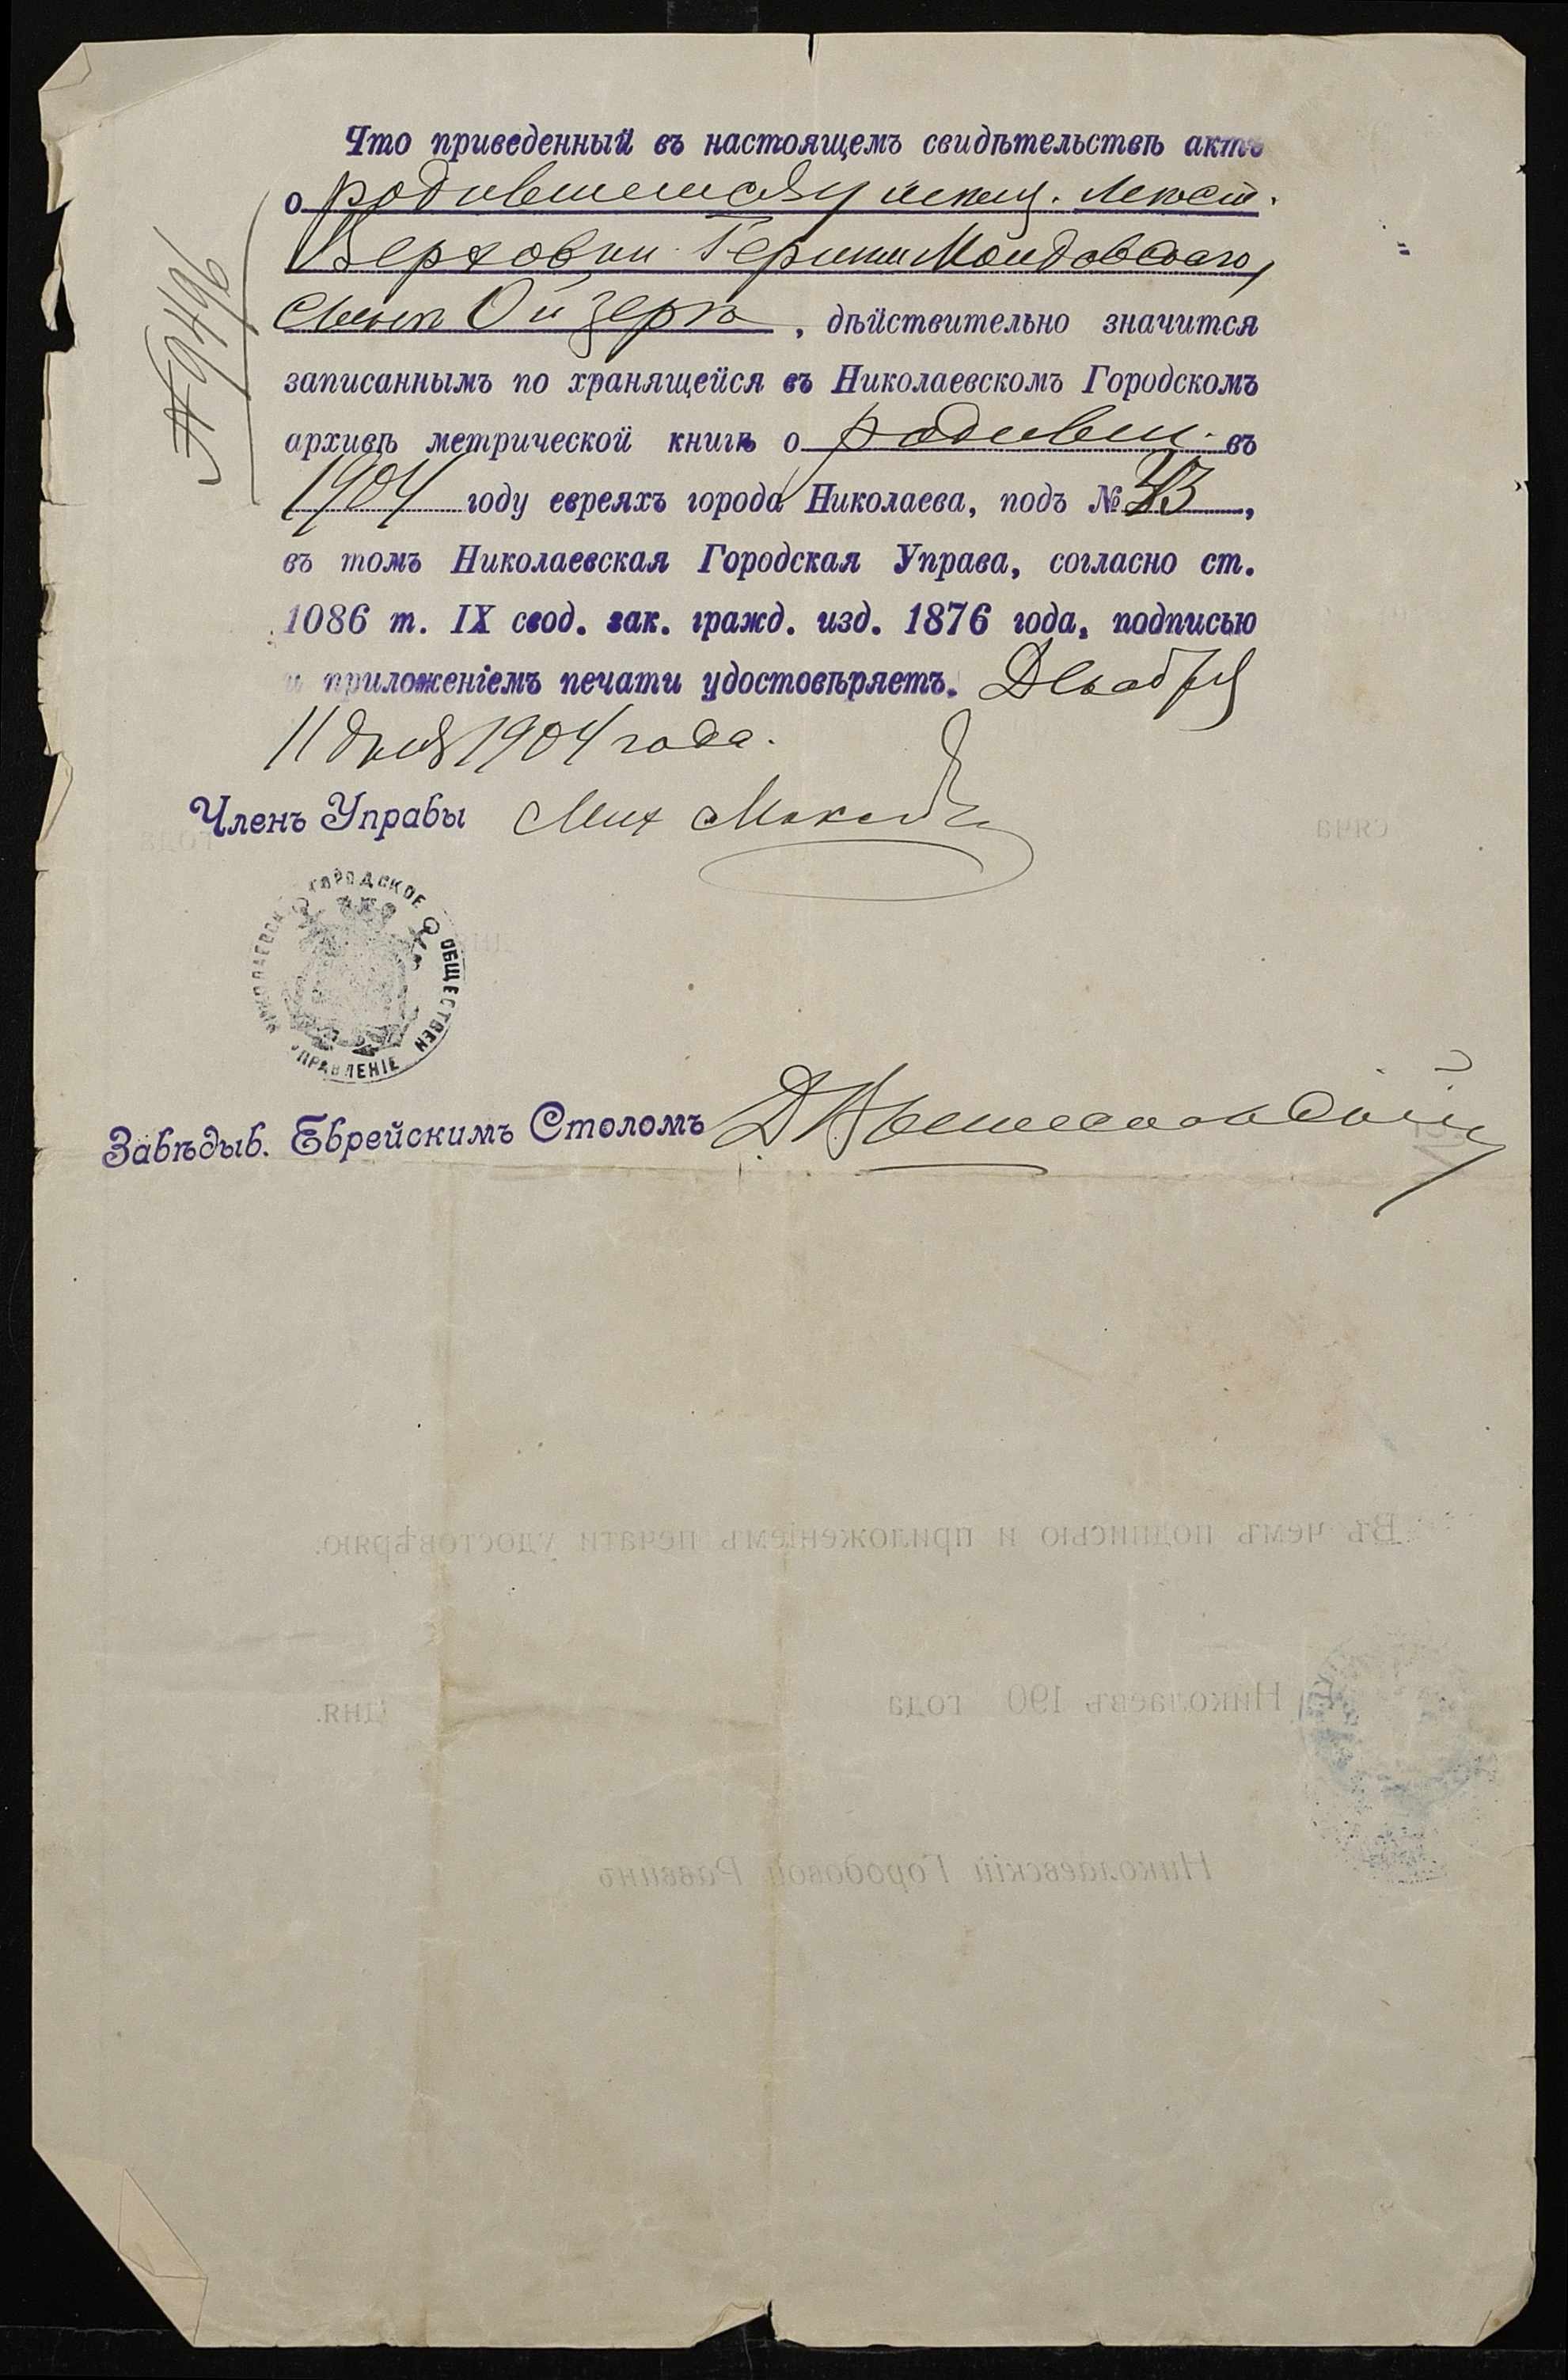 Что приведенный въ настоящемъ свидѣтельствѣ актъ
о родившемся у мѣщ. мѣст.
Верховни Гершки
сынѣ Ойзерѣ, дѣйствительно значится
записаннымъ по хранящейся въ Николаевскомъ Городскомъ
архивѣ метрической книгѣ о родивш. въ
1904 году евреяхъ города Николаева, подъ №
въ томъ Николаевская Городская Управа, согласно ст.
1086 т. IX свод. зак. гражд. изд. 1876 года, подписью
и приложеніемъ печати удостовѣряетъ. Декабря
11 дня 1904 года.
№ 9446
Членъ Управы Мих
НИКОЛАЕВСК ГОРОДСКОЕ ОБЩЕСТВЕН УПРАВЛЕНІЕ
Завѣдыв. Еврейскимъ Столомъ
Въ чемъ подписью и приложеніемъ печати удостовѣряю.
Николаевъ 190 года дня.
Николаевскій Городовой Раввинъ